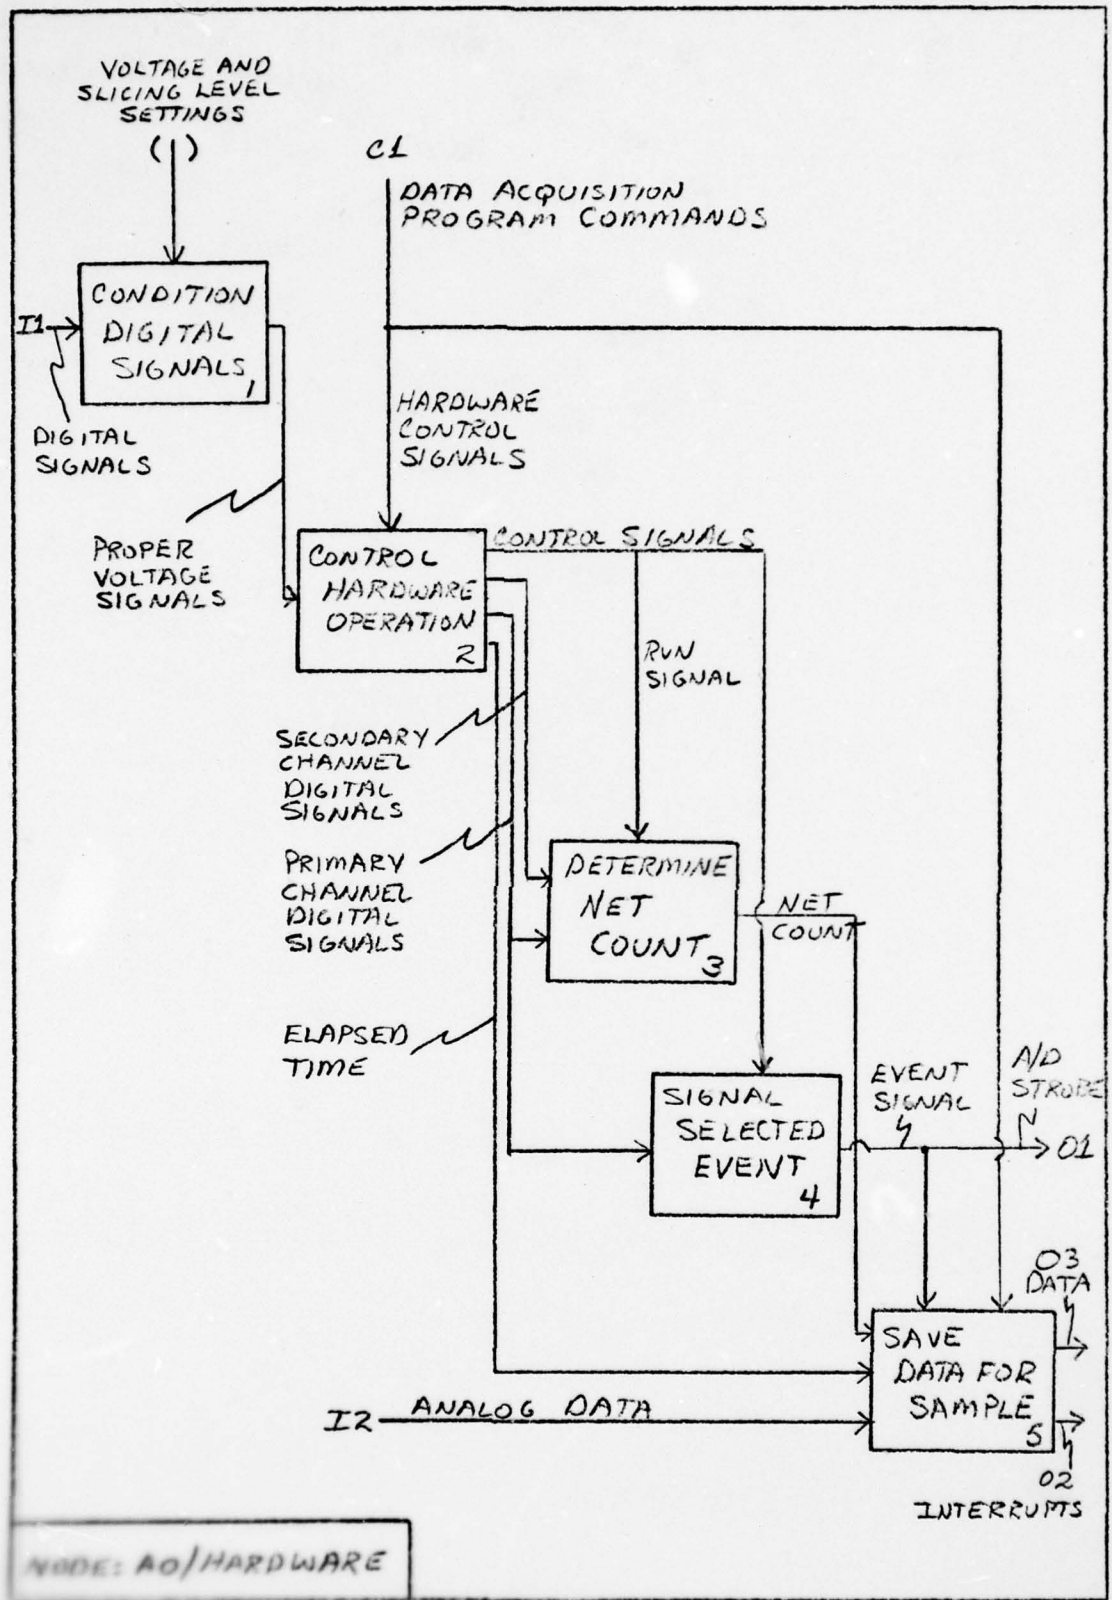 VOLTAGE AND
SLICING LEVEL
SETTINGS
( )
C1
DATA ACQUISITION
PROGRAM COMMANDS
I1
CONDITION
DIGITAL
SIGNALS
1
DIGITAL
SIGNALS
HARDWARE
CONTROL
SIGNALS
PROPER
VOLTAGE
SIGNALS
CONTROL
HARDWARE
OPERATION
2
CONTROL SIGNALS
RUN
SIGNAL
SECONDARY
CHANNEL
DIGITAL
SIGNALS
PRIMARY
CHANNEL
DIGITAL
SIGNALS
DETERMINE
NET
COUNT
3
NET
COUNT
ELAPSED
TIME
SIGNAL
SELECTED
EVENT
4
EVENT
SIGNAL
A/D
STROBE
O1
O3
DATA
SAVE
DATA FOR
SAMPLE
5
I2
ANALOG DATA
O2
INTERRUPTS
NODE: A0/HARDWARE